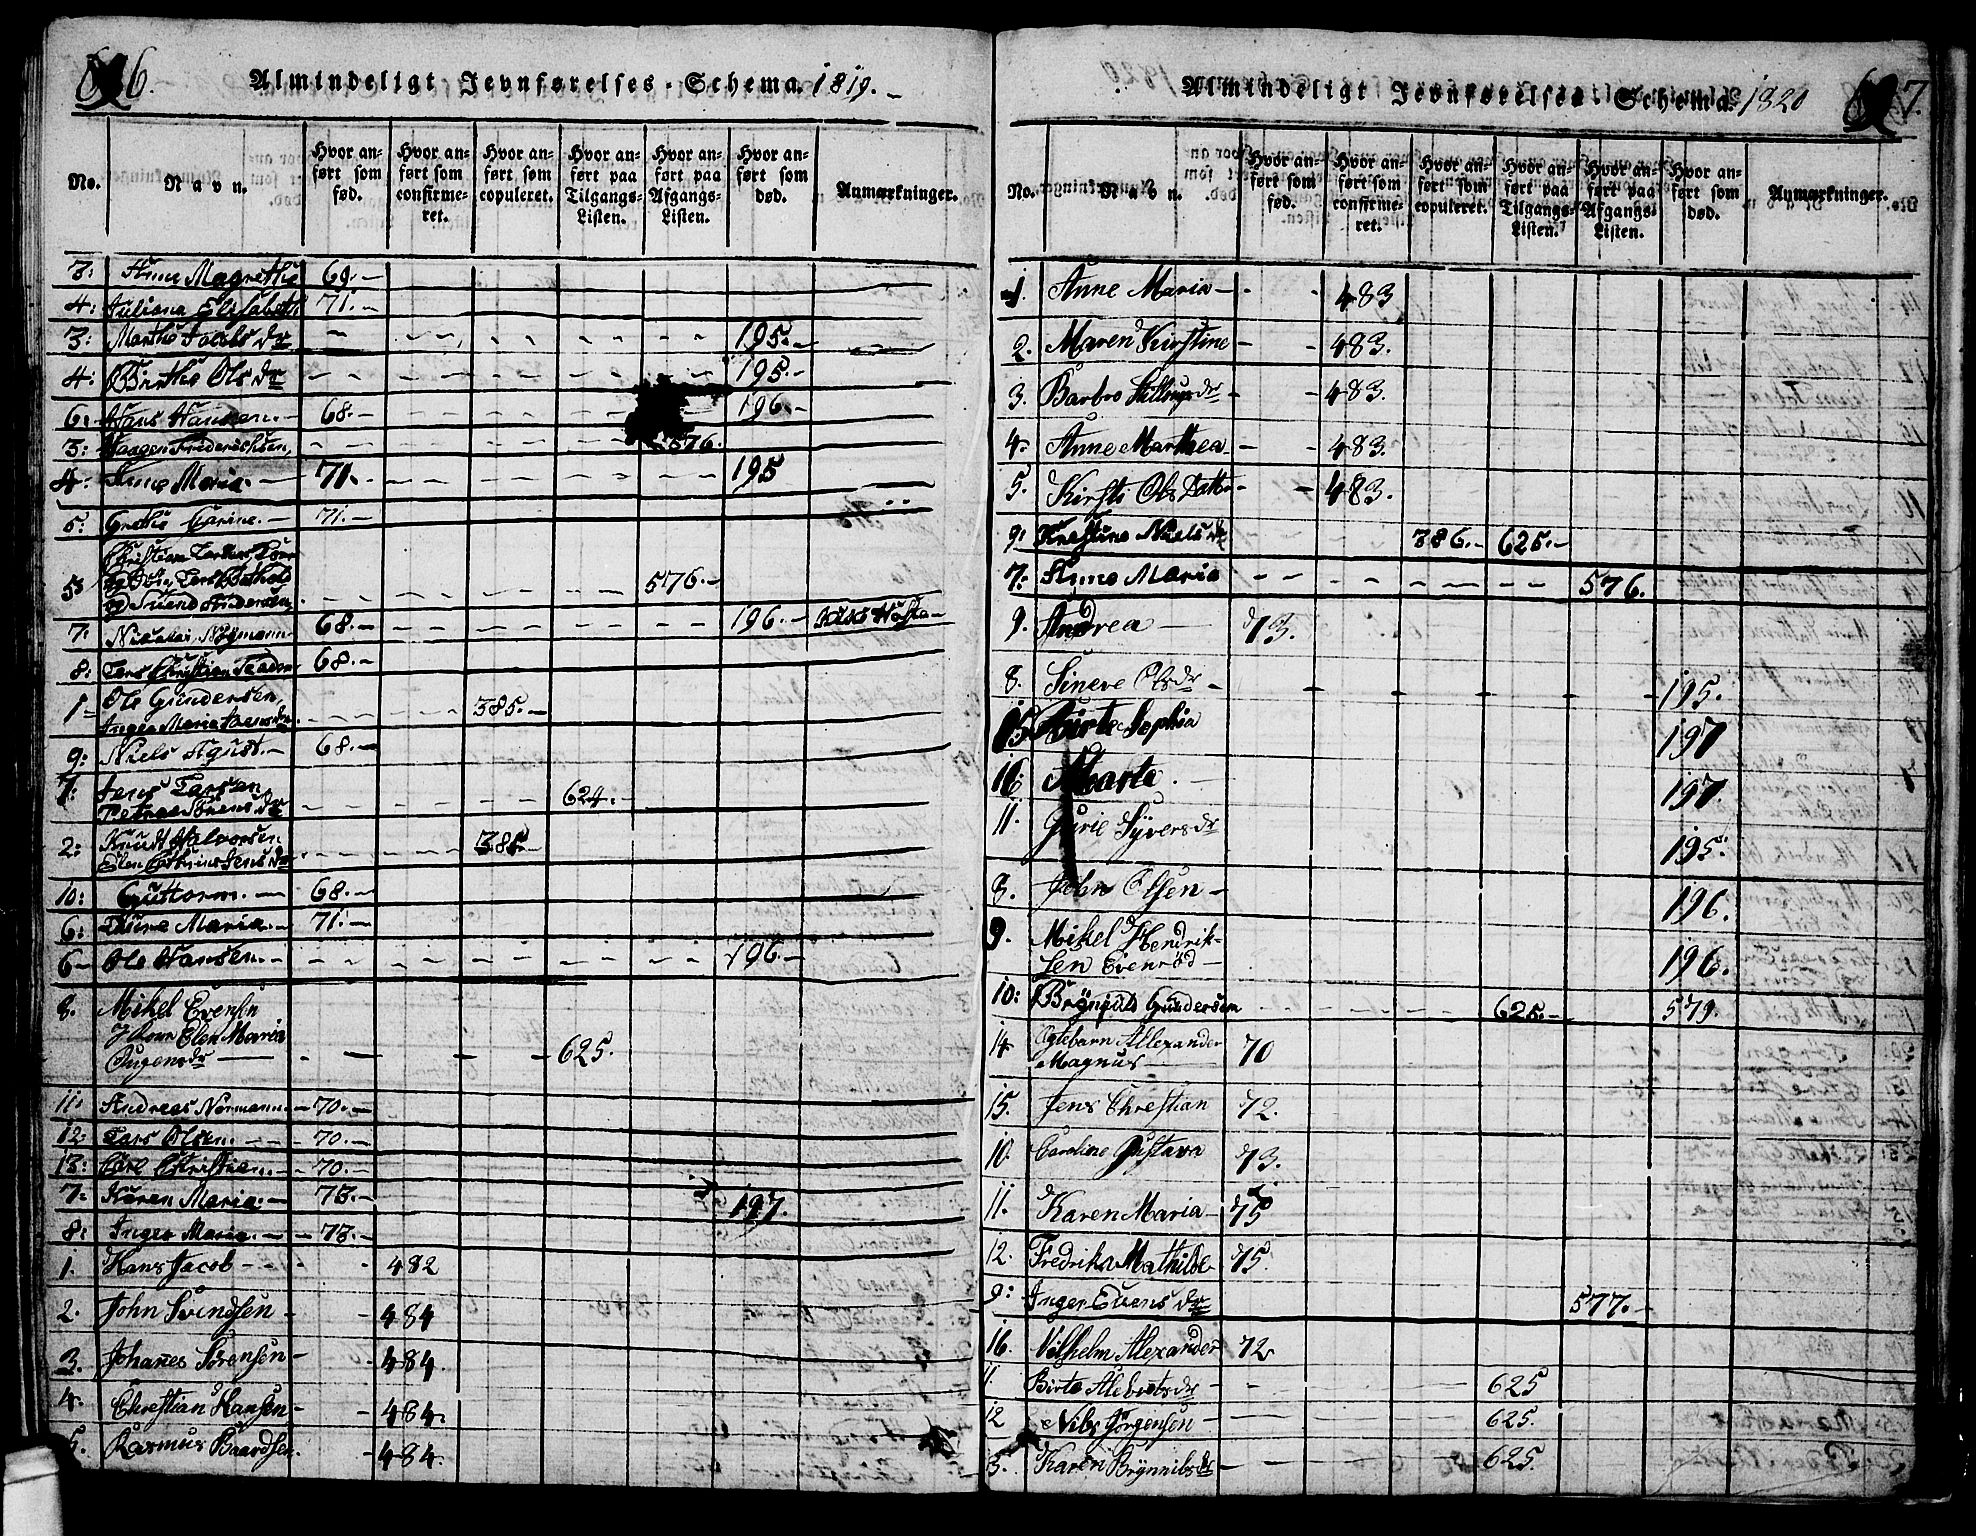 6 6.
Almindeligt Jevnførelses-Schema. 1819.
No.
Navn.
Hvor anført som fød.
Hvor anført som confirmeret.
Hvor anført som copuleret.
Hvor anført paa Tilgangs-Listen.
Hvor anført paa Afgangs-Listen.
Hvor anført som død.
Anmærkninger.
3: Anne Magrethe 69.-
4: Juliana Elisabeth 71.-
3: Marthe Jacobs dr 195.-
4: Berthe Ols dr 195.-
6: Hans Hansen.- 68.- 196.-
3: Haagen Frederichsen 576.
4: Anne Maria.- 71.- 195
5: Grethe Carine.- 71.-
5 576.-
og Svend Andersen
7: Nicolai Normann 68.- 196.-
8: Lars Christian 68.-
1 Ole Gundersen
Inger Maria 385.-
9: Niels Agust.- 68.-
7: Jens Larsen
624.-
2: Knudt Halvorsen
Elen Cathrine Jens dr 385.-
10: Guttorm.- 68.-
6: Maria.- 71.-
6- Ole Hansen.- 196.-
8. Mikel Evensen
Kone Elen Maria
625.
11: Andreas Normann.- 70.-
12: Lars Olsen.- 70.-
13: Carl Christian.- 70.-
7: Karen Maria.- 73.- 197.
8: Inger Maria.- 73.-
1. Hans Jacob 482
2. John Svendsen 484
3. Johanes Sørensen 484.
4. Christian Hansen 484.
5. Rasmus Baardsen. 484.
6 7.
Almindeligt Jevnførelses-Schema. 1820
No.
Navn.
Hvor anført som fød.
Hvor anført som confirmeret.
Hvor anført som copuleret.
Hvor anført paa Tilgangs-Listen.
Hvor anført paa Afgangs-Listen.
Hvor anført som død.
Anmærkninger.
1. Anne Maria 483
2. Maren Kirstine 483.
3. Barbro 483.
4. Anne Marthea 483.
5. Kirsti Ols Datter 483.
9: Kirstine Niels dr 386.- 625.-
7: Anne Maria 576.
9. Andrea 73.
8. Sineve Ols dr 195.
15 Birte Sophia 197
16: Marte. 197.
11. Gurie Syvers dr 195.
8. John Olsen 196.
9. Mikel Hendrik-
sen Evenrød 196.
10: Brÿnild Gundersen 625.- 579.
14 Ægtebarn Allexander
Magnus 70
15. Jens Christian 72.
10. Caroline Gustava 73.
11. Karen Maria 75
12. Fredrika Mathilde 75.
9: Inger Evens dr 577.-
16. Vilhelm Alexander 72
11. Birte dr 625
12 Niels Jørgensen 625.
Karen Brÿnnilds dr 625.